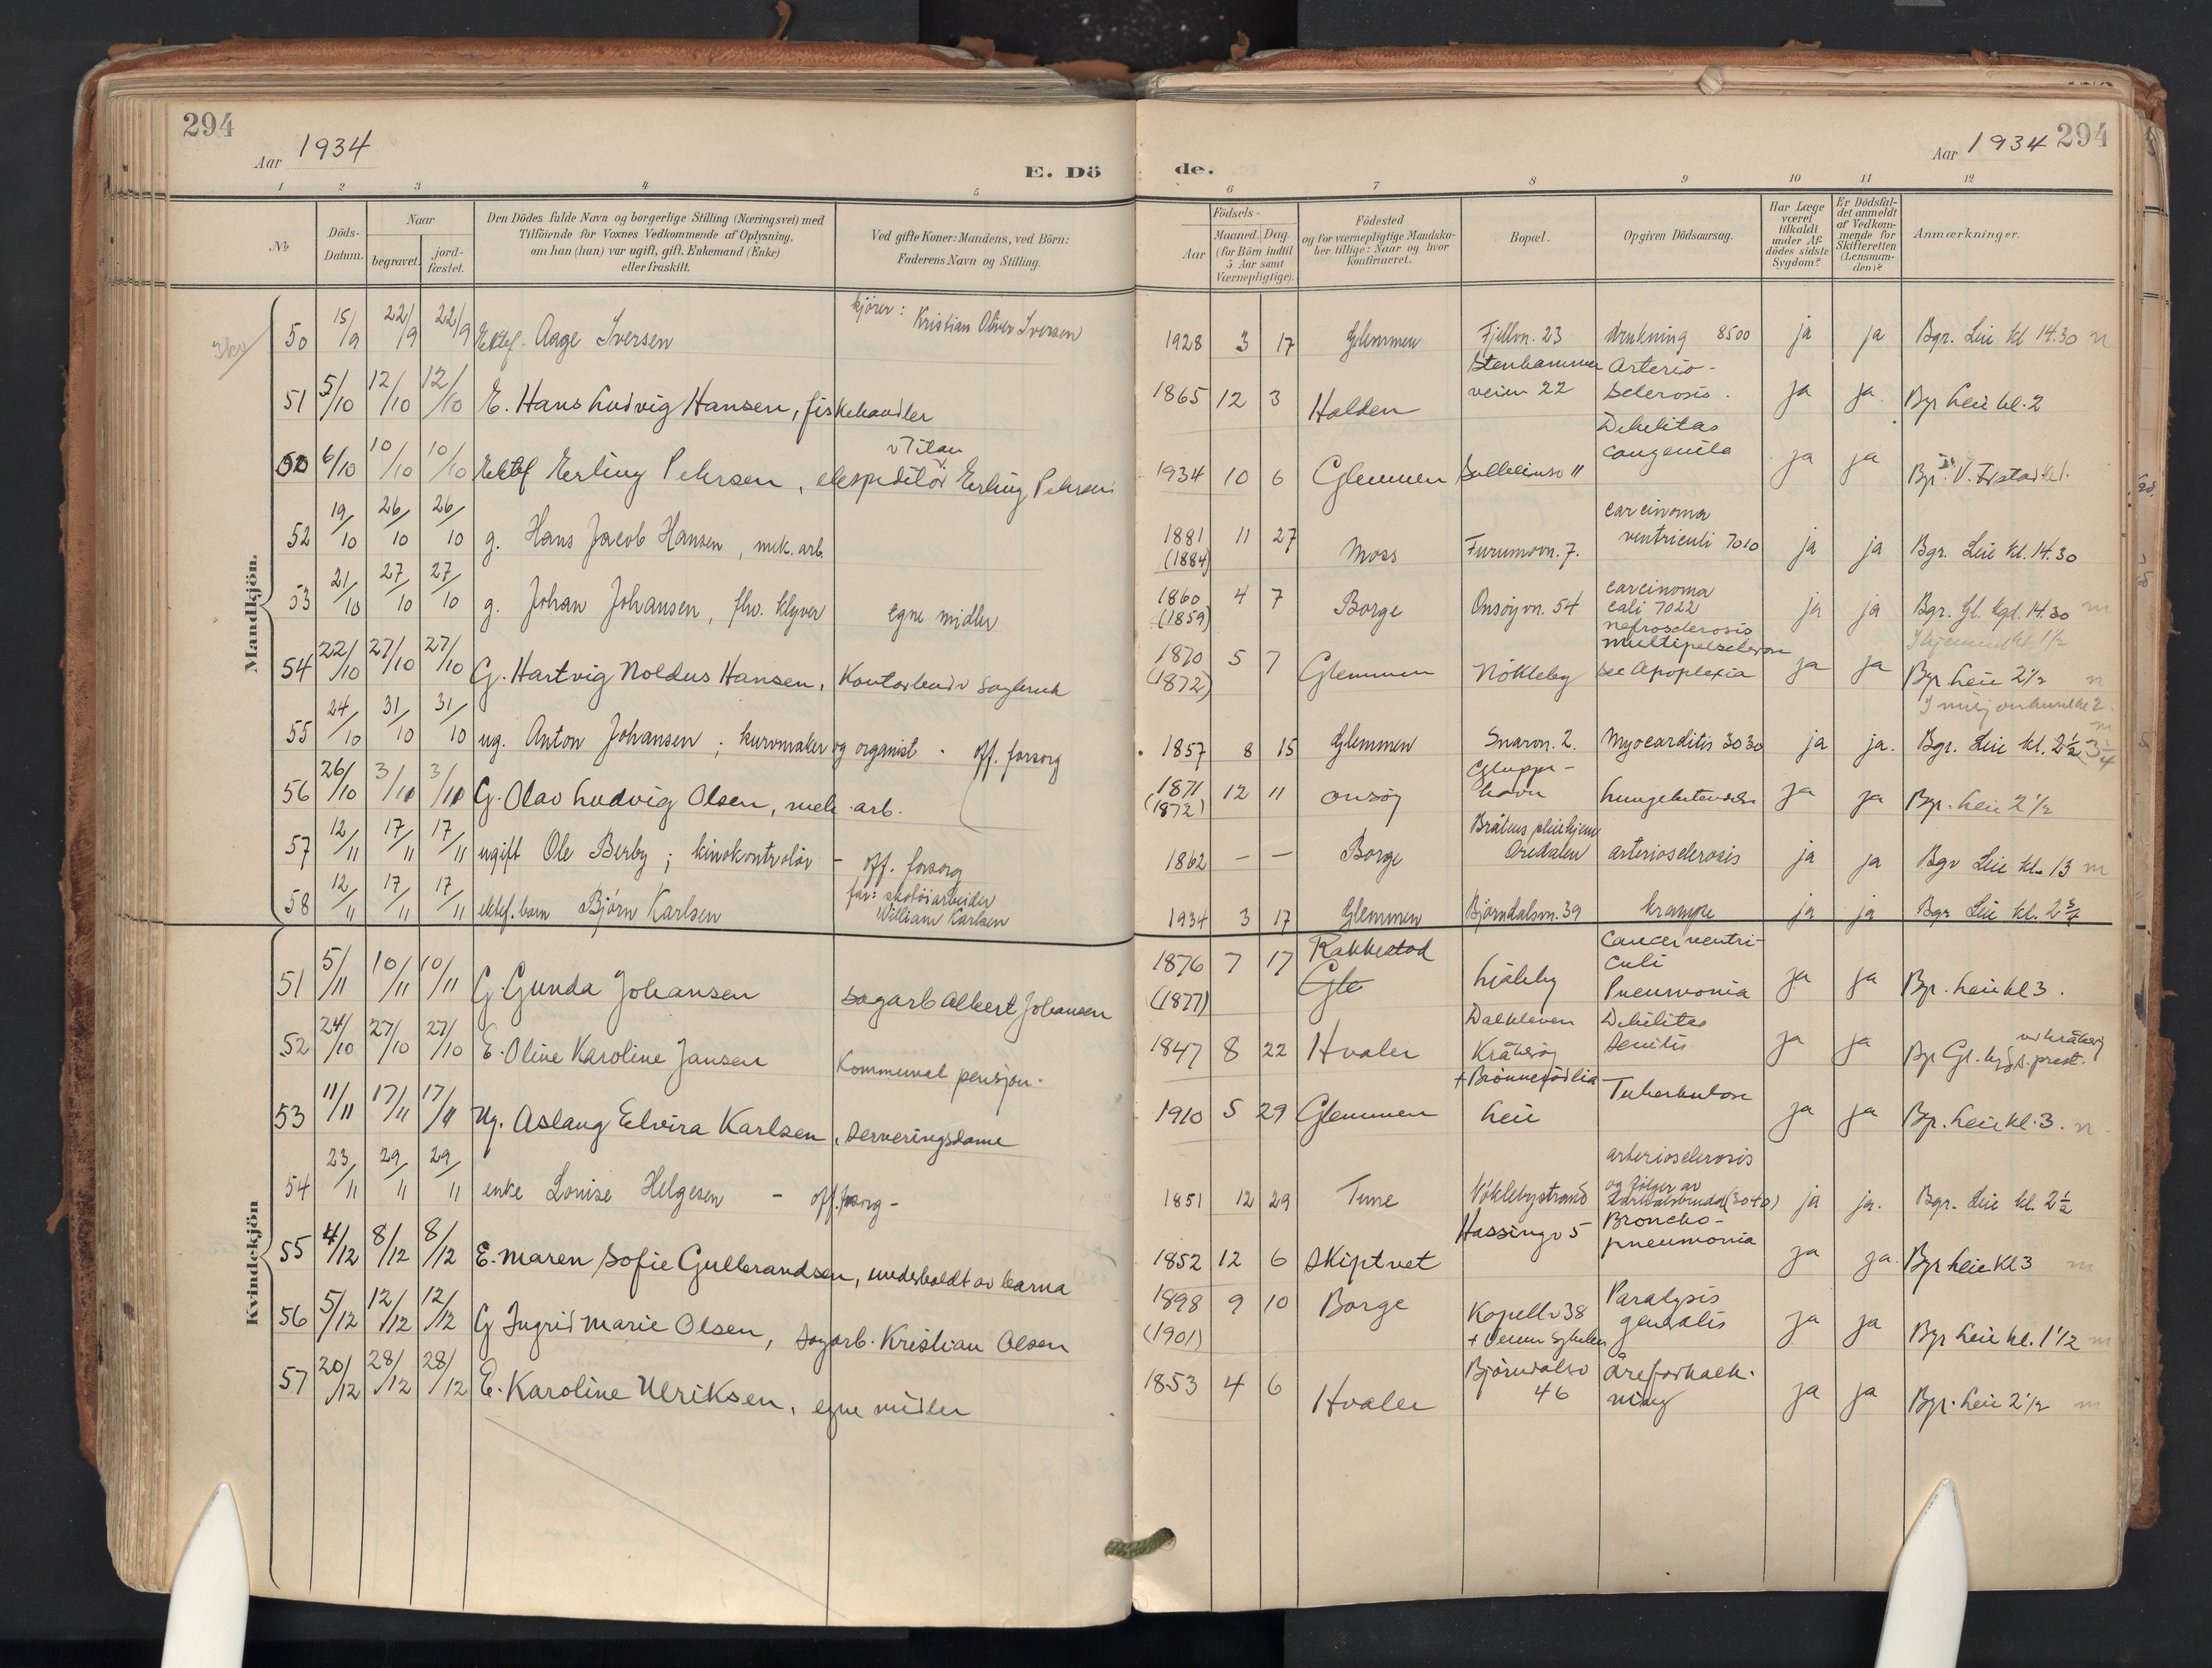 294
Aar 1934
E. Dö
1 2 3 4 5
No
Döds-Datum.
Naar
begravet.
jord-fæstet.
Den Dödes fulde Navn og borgerlige Stilling (Næringsvei) med
Tilföiende for Voxnes Vedkommende af Oplysning,
om han (hun) var ugift, gift, Enkemand (Enke)
eller fraskilt.
Ved gifte Koner: Mandens, ved Börn:
Faderens Navn og Stilling.
Mandkjön.
50 15/9 22/9 22/9 Ektef. Aage Iversen kjører: Kristian Oliver Iversen
51 5/10 12/10 12/10 E. Hans Ludvig Hansen, fiskehandler
6/10 10/10 10/10 Ektef Erling Pehrsen, ekspeditör v Titan Erling Pehrsen
52 19/10 26/10 26/10 g. Hans Jacob Hansen, mek. arb.
53 21/10 27/10 27/10 g. Johan Johansen, fhv. klyver egne midler
54 22/10 27/10 27/10 G. Hartvig Noldus Hansen, Kontorbud v Sagbruk
55 24/10 31/10 31/10 ug. Anton Johansen; kurvmaker og organist - off. forsorg
56 26/10 3/11 3/11 G. Olav Ludvig Olsen, mek. arb.
57 12/11 17/11 17/11 ugift Ole Berby; kinokontrolör - off. forsorg
58 12/11 17/11 17/11 ektef. barn Bjørn Karlsen far: skotöiarbeider William Karlsen
Kvindekjön
51 5/11 10/11 10/11 G. Gunda Johansen sagarb Albert Johansen
52 24/10 27/10 27/10 E. Oline Karoline Jansen Kommunal pensjon.
53 11/11 17/11 17/11 Ug. Aslaug Elvira Karlsen, serveringsdame
54 23/11 29/11 29/11 enke Lovise Helgesen - off. forsorg -
55 4/12 8/12 8/12 E. Maren Sofie Gulbrandsen, underholdt av barna
56 5/12 12/12 12/12 G Ingrid Marie Olsen, sagarb. Kristian Olsen
57 20/12 28/12 28/12 E. Karoline Ulriksen, egne midler
de.
Aar 1934 294
6 7 8 9 10 11 12
Födsels-
Aar
Maaned. Dag
(for Börn indtil
5 Aar samt
Værnepligtige).
Födested
og for værnepligtige Mandska-
ber tillige: Naar og hvor
konfirmeret.
Bopæl.
Opgiven Dödsaarsag.
Har Læge
været
tilkaldt
under Af-
dödes sidste
Sygdom?
Er Dödsfal-
det anmeldt
af Vedkom-
mende for
Skifteretten
(Lensman-
den)?
Anmærkninger.
1928 3 17 Glemmen Fjellvn. 23 drukning 8500 ja ja Bgr. Leie kl 14.30
1865 12 3 Halden Stenhammerveien 22 Arteriosclerosis. ja ja Bgr Leie kl. 2
1934 10 6 Glemmen 11 Debilitas congenita ja ja
1881 (1884) 11 27 Moss Furumovn. 7. carcinoma ventriculi 7010 ja ja Bgr. Leie kl. 14.30
1860 (1859) 4 7 Borge Onsøyvn. 54 carcinoma coli 7022 ja ja Bgr. Gl. kgd. 14.30
1870 (1872) 5 7 Glemmen Nökleby nefrosclerosis Apoplexia ja ja Bgr Leie 2 1/2
1857 8 15 Glemmen Snarvn. 2. Myocarditis 3030 ja ja. Bgr. Leie kl. 2 1/2
1871 (1872) 12 11 Onsøy ja ja Bgr. Leie 2 1/2
1862 - - Borge Bråtens pleiehjem Oredalen arteriosclerosis ja ja Bgr Leie kl. 13
1934 3 17 Glemmen Bjørndalsvn. 39 krampe ja ja Bgr Leie kl. 2 3/4
1876 (1877) 7 17 Rakkestad Gle Lisleby Cancer ventriculi Pneumonia ja ja Bgr. Leie kl 3.
1847 8 22 Hvaler Kråkerøy Debilitas senilis ja ja Bgr Gl.
1910 5 29 Glemmen Leie Tuberkulose ja ja Bgr. Leie kl. 3.
1851 12 29 Tune Nöklebystrand arteriosclerosis og fölger av lårhalsbrudd (3040) ja ja. Bgr. Leie kl. 2 1/2
1852 12 6 Skiptvet Hassingv 5 Bronchopneumonia ja ja. Bgr Leie kl 3
1898 (1901) 9 10 Borge Kapellv 38 Paralysis generalis ja ja Bgr Leie kl. 1 1/2
1853 4 6 Hvaler Bjørndalsv 46 Åreforkalkning ja ja Bgr. Leie 2 1/2